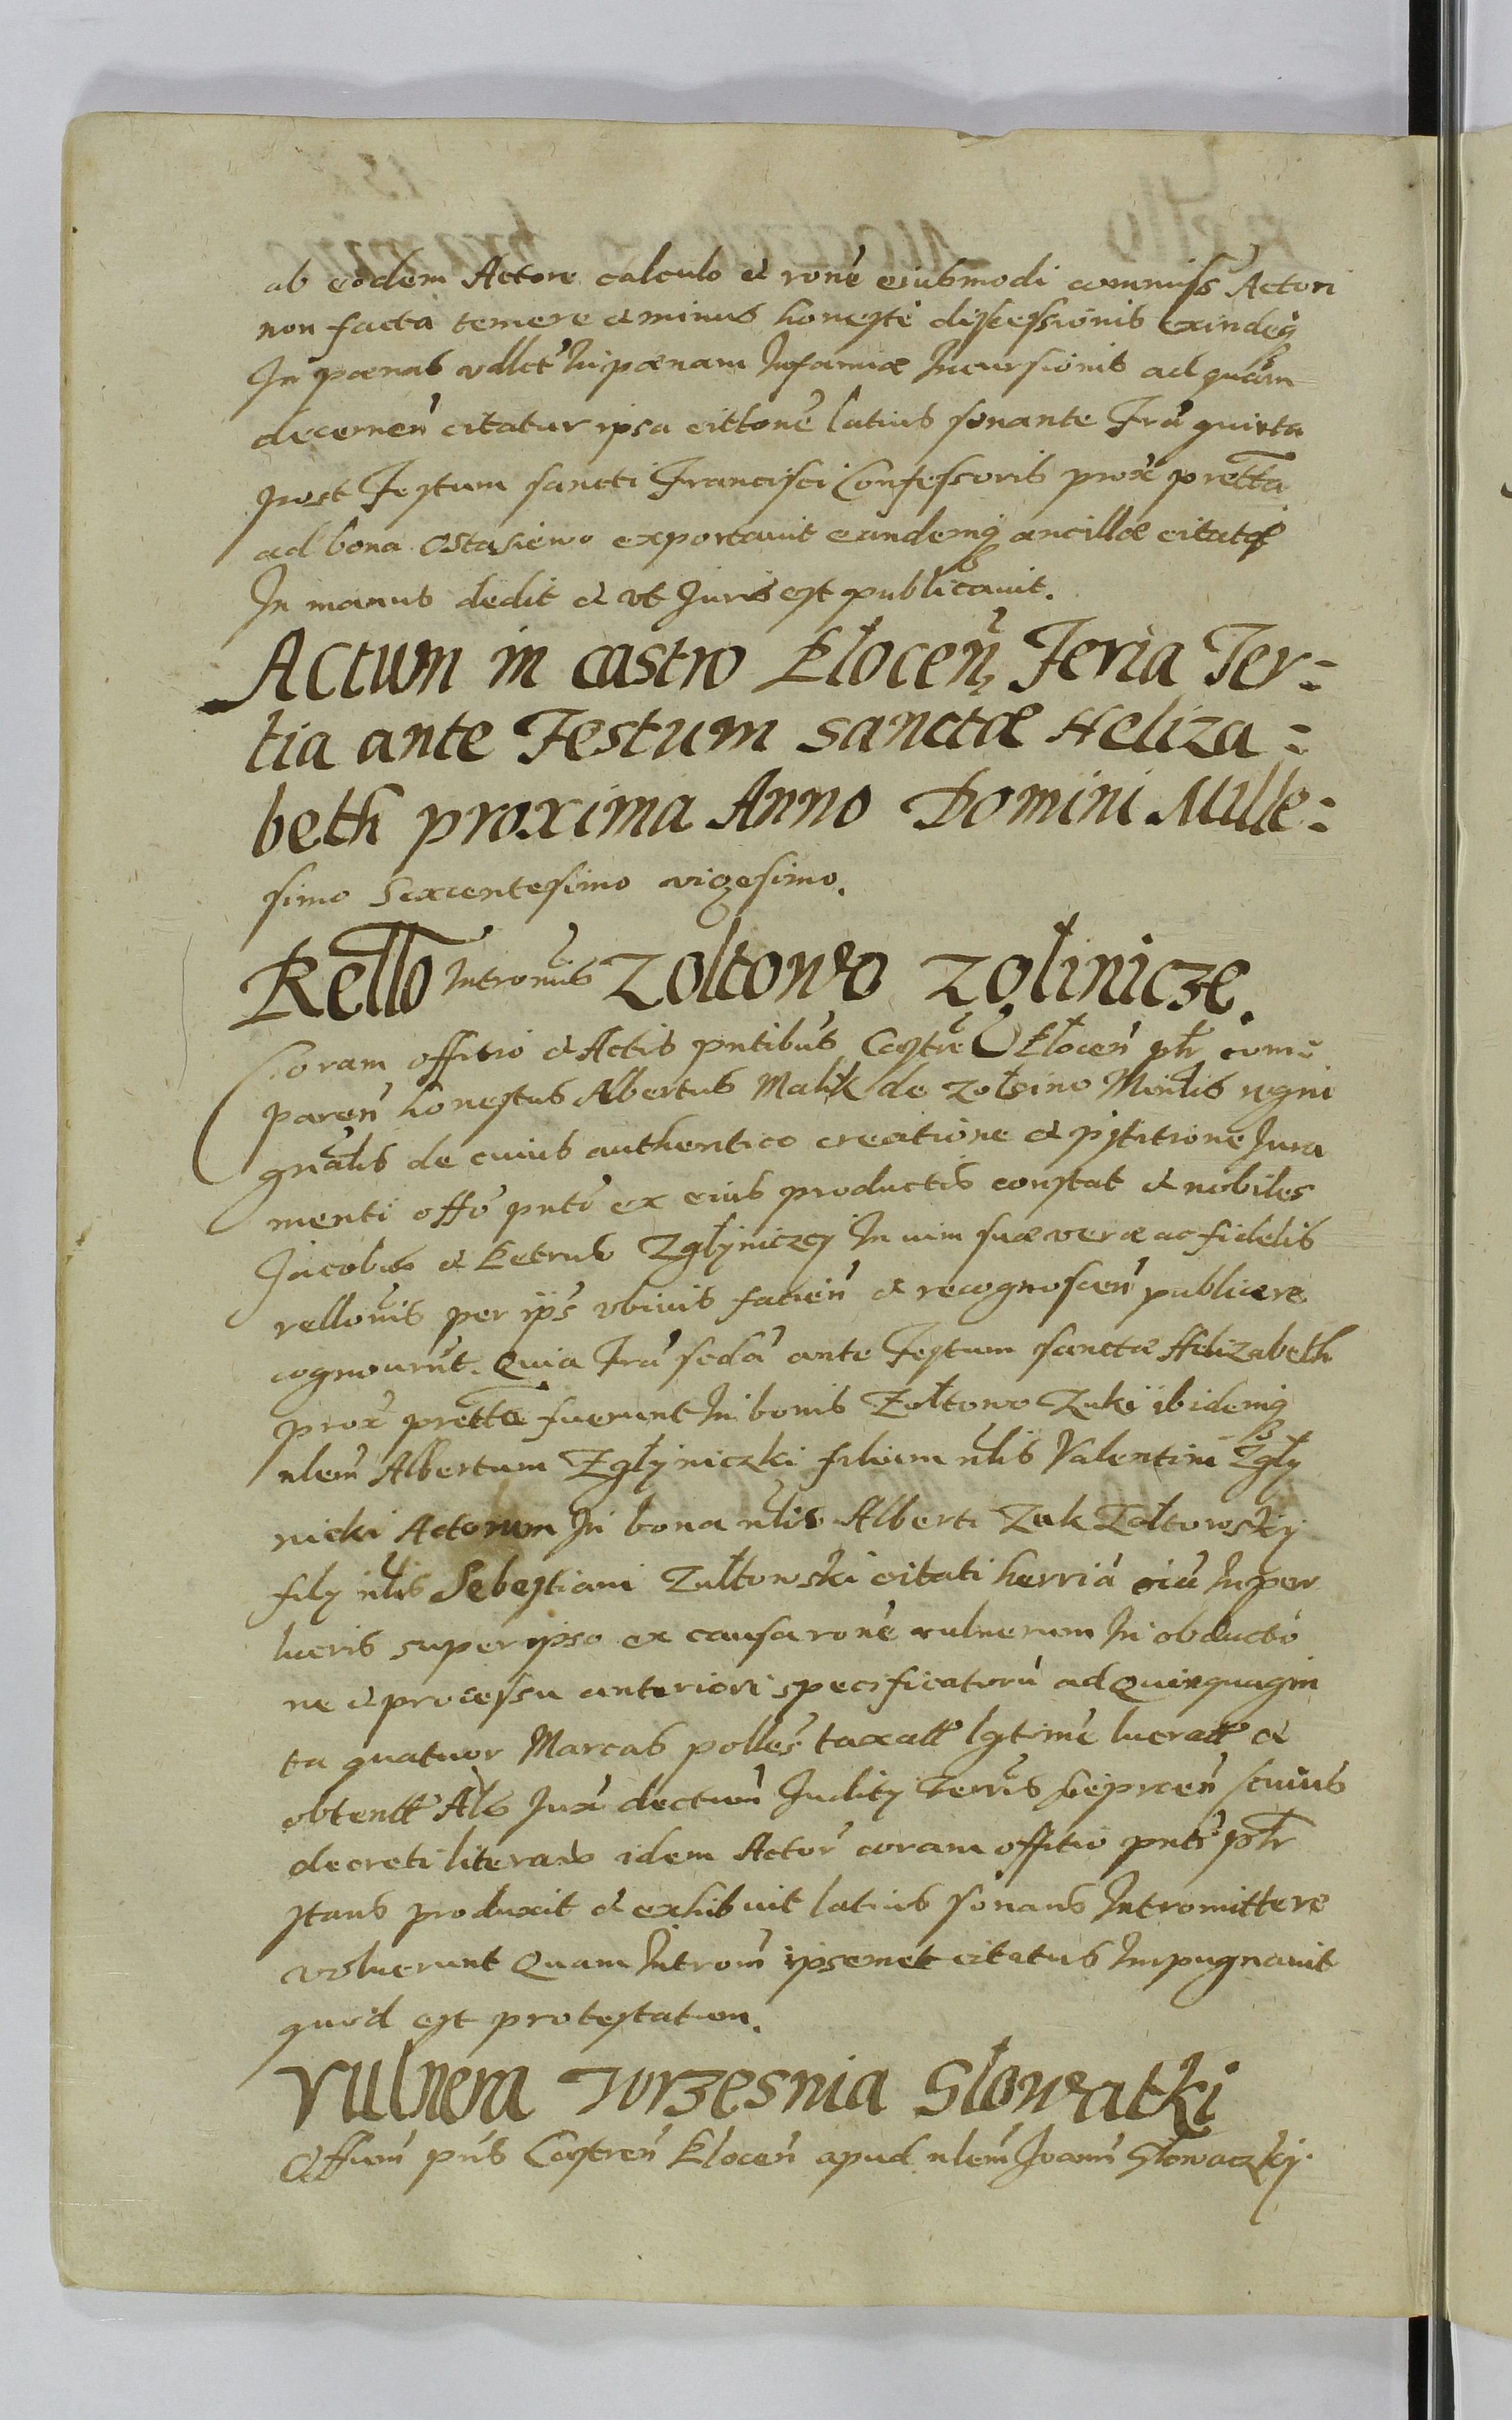 ab eodem Actore calculo et rone eiusmodi commiss Actori
non facta temere et minus honeste discessionis exindeq
In poenas vallet In poenam Infamiae Incursionis ad quam
decernen citatur ipsa cittone latius sonante Fra quinta
post Festum sancti Francisci Confessoris prox pretta
ad bona Ostasiewo exportavit eandemq ancillae citatae
In manus dedit et vt Juris est publicavit.
Actum in castro Płocen Feria Ter=
tia ante Festum sanctae Heliza=
beth proxima Anno Domini Mille=
simo Sexcentesimo vigesimo.
Rello Intromis Zoltowo Zgliniczе.
Coram offitio et Actis pntibus Castren Płocen plr com
paren honestus Albertus Malik de Minlis regni
gnalis de cuius authentico creatione et pstitione Jura
menti offo pnti ex eius productis constat et nobiles
Jacobus et Petrus Zgłyniczcy In vim suae verae ac fidelis
rellonis per ips vbivis facien et recognoscen publice re
cognovrut. Quia Fra scda ante Festum sanctae Helizabeth
prox pretta fuerunt In bonis Zołtowo Zuki ibidemq
nlem Albertum Zgłyniczki filium nlis Valentini Zgły
nicki Actorem In bona nlis Alberti Zuk Zołtowsky
fily nlis Sebestiani Zułtowski citati herria In per
lucris super ipso ex causa rone vulnerum In obducto
ne et processu anteriori specificatoru ad Quinquagin
ta quatuor Marcas polles taxatt lgtime lucratt et
obtentt Als Jux dectum Judity Terris cuius
decreti literas idem Actor coram offitio pnti plr
stans produxit et exhibuit latius sonans Intromittere
voluerunt Quam Introm ipsemet citatus Impugnavit
quod est protestatum.
Vulnera Wrzesnia Słowatki
Offium pns Castren Płocen apud nlem Joann Słowaczky